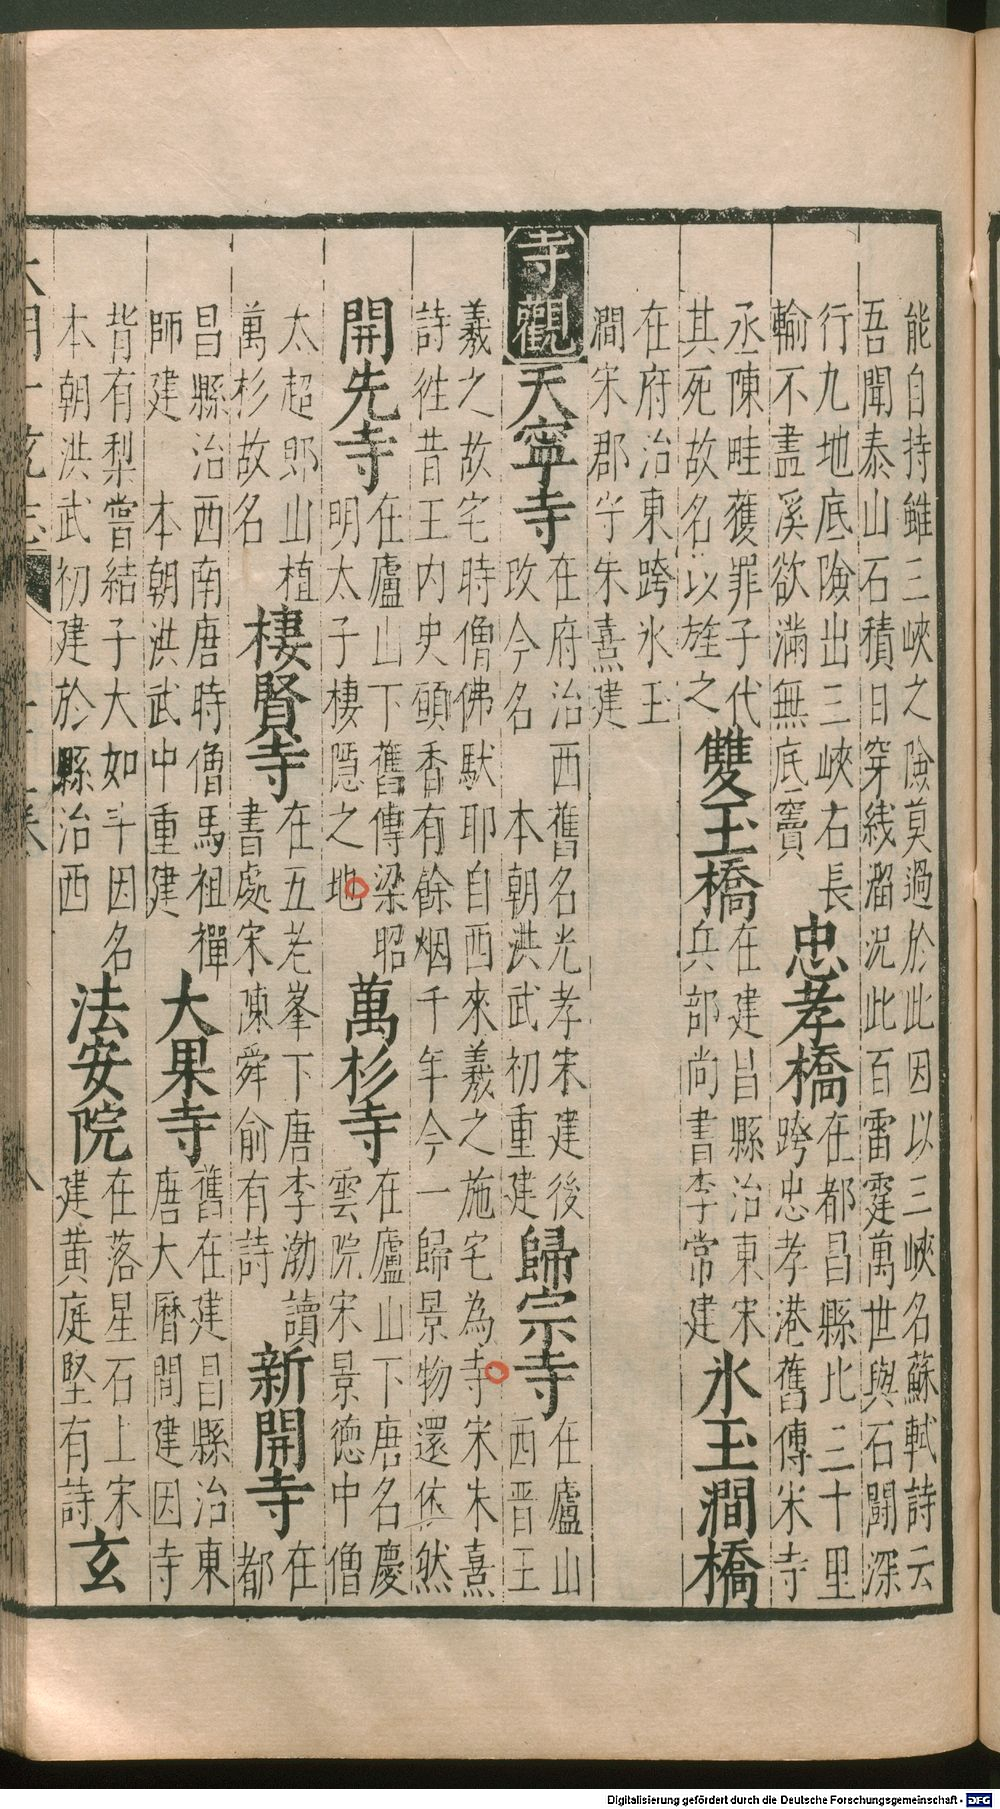 能自持雖三峽之險莫過於此因以三峽名蘇軾詩云
吾聞泰山石積日穿綫溜況此百雷霆萬世與石鬬深
行九地底險出三峽右長
輸不盡溪欲滿無底竇
忠孝橋
在都昌縣北三十里
跨忠孝港舊傳宋寺
丞陳畦獲罪子代
其死故名以旌之
雙玉橋
在建昌縣治東宋
兵部尚書李常建
氷玉澗橋
在府治東跨氷玉
澗宋郡守朱熹建
寺觀
天寧寺
在府治西舊名光孝宋建後
改今名 本朝洪武初重建
歸宗寺
在廬山
西晋王
羲之故宅時僧佛馱耶自西來羲之施宅為寺宋朱熹
詩徃昔王内史頭香有餘烟千年今一歸景物還依然
開先寺
在廬山下舊傳梁昭
明太子棲隱之地
萬杉寺
在廬山下唐名慶
雲院宋景德中僧
太超即山植
萬杉故名
棲賢寺
在五老峯下唐李渤讀
書處宋陳舜俞有詩
新開寺
在
都
昌縣治西南唐時僧馬祖禪
師建 本朝洪武中重建
大果寺
舊在建昌縣治東
唐大曆間建因寺
背有梨嘗結子大如斗因名
本朝洪武初建於縣治西
法安院
在落星石上宋
建黄庭堅有詩
玄
大明一統志
Digitalisierung gefördert durch die Deutsche Forschungsgemeinschaft - DFG